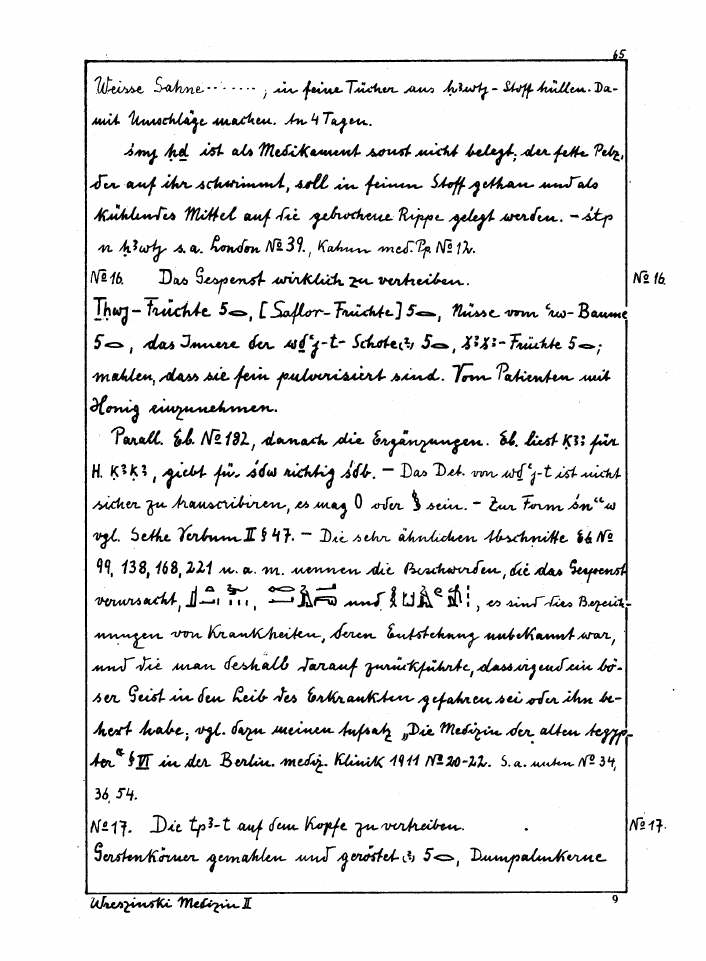 65
Weisse Sahne ........, in feine Tücher aus ḥꜣwtj-Stoff hüllen. Da-
mit Umschläge machen. An 4 Tagen.
śmj ḥḏ ist als Medikament sonst nicht belegt; der fette Pelz,
der auf ihr schwimmt, soll in feinen Stoff gethan und als
kühlendes Mittel auf die gebrochene Rippe gelegt werden. – śtp
n ḥꜣwtj s. a. London No 39., Kahun med. Pp No 12.
No 16. Das Gespenst wirklich zu vertreiben. No 16.
-Früchte 5, [Saflor-Früchte] 5, Nüsse vom ꜥrw-Baume
5, das Innere der wḏꜥj-t-Schote(?) 5, -Früchte 5;
mahlen, dass sie fein pulverisiert sind. Vom Patienten mit
Honig einzunehmen.
Parall. Eb. No 182, danach die Ergänzungen. Eb. liest für
H. ḳꜣḳꜣ, giebt für śdw richtig śdb. – Das Det. von wḏꜥj-t ist nicht
sicher zu transcribiren, es mag oder sein. – Zur Form
vgl. Sethe Verbum II § 47. – Die sehr ähnlichen Abschnitte Eb No
99, 138, 168, 221 u. a. m. nennen die Beschwerden, die das Gespenst
verursacht, , und , es sind dies Bezeich-
nungen von Krankheiten, deren Entstehung unbekannt war,
und die man deshalb darauf zurückführte, dass irgend ein bö-
ser Geist in den Leib des Erkrankten gefahren sei oder ihn be-
hext habe; vgl. dazu meinen Aufsatz „Die Medizin der alten Aegyp-
ter“ § VI in der Berlin. mediz. Klinik 1911 No 20-22. S. a. unten No 34,
36, 54.
No 17. Die tpꜣ-t auf dem Kopfe zu vertreiben. No 17.
Gerstenkörner gemahlen und geröstet(?) 5, Dumpalmkerne
Wreszinski Medizin II 9